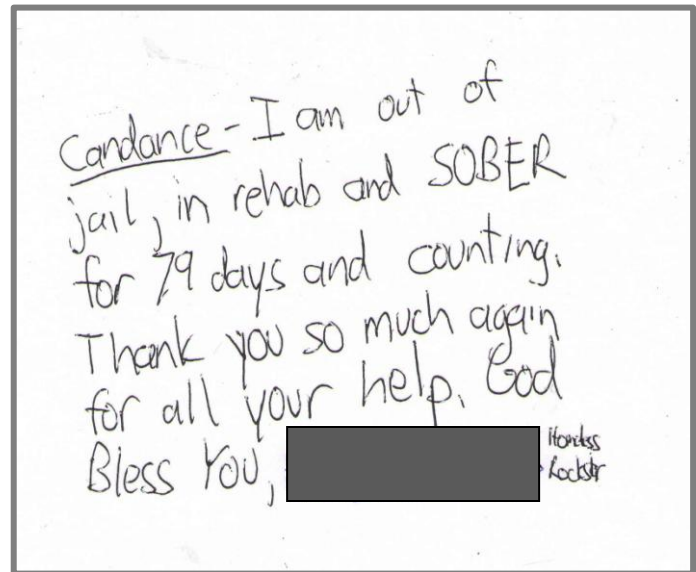 Candance - I am out of
jail, in rehab and SOBER
for 79 days and counting.
Thank you so much again
for all your help. God
Bless You,